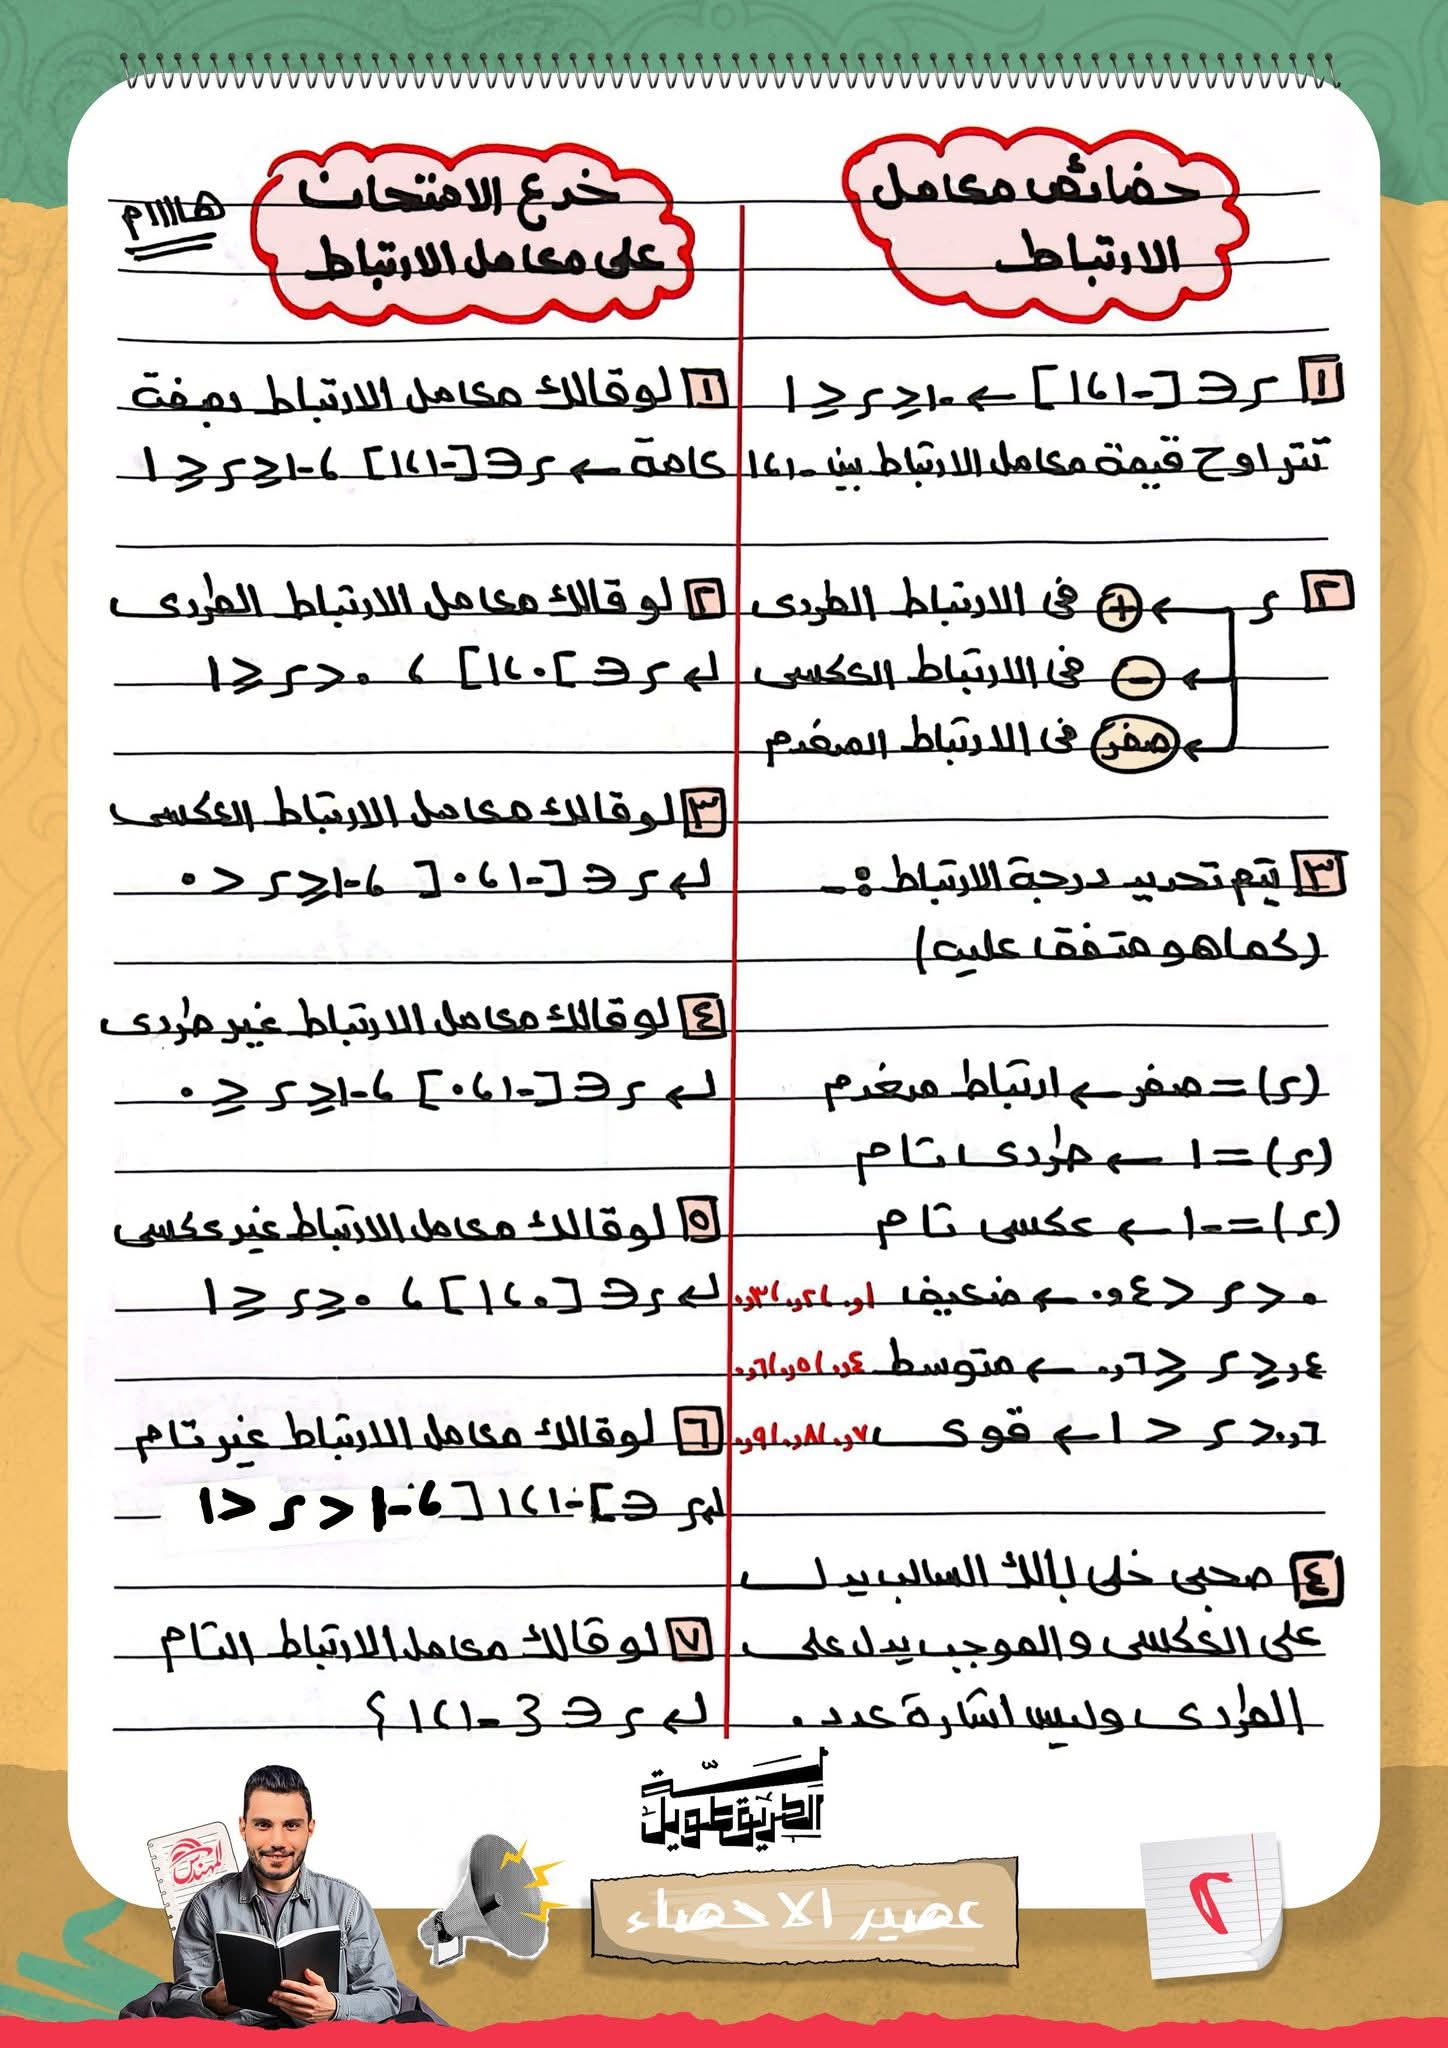 خصائص معامل
الارتباط
١ ر ∈ [-١ ، ١] ← -١ ≤ ر ≤ ١
تتراوح قيمة معامل الارتباط بين -١ ، ١
٢ ر ← + فى الارتباط الطردى
← - فى الارتباط العكسى
← صفر فى الارتباط المنعدم
٣ يتم تحديد درجة الارتباط :-
(كما هو متفق عليه)
(ر) = صفر ← ارتباط منعدم
(ر) = ١ ← طردى تام
(ر) = -١ ← عكسى تام
٠ < ر < ٠,٤ ← ضعيف ٠,١ / ٠,٢ / ٠,٣
٠,٤ ≤ ر ≤ ٠,٦ ← متوسط ٠,٤ / ٠,٥ / ٠,٦
٠,٦ < ر < ١ ← قوى ٠,٧ / ٠,٨ / ٠,٩
٤ صحبى خلى بالك السالب يدل
على العكسى والموجب يدل على
الطردى وليس اشارة عدد .
خدع الامتحان
على معامل الارتباط
هاااام
١ لو قالك معامل الارتباط بصفة
عامة ← ر ∈ [-١ ، ١] ، -١ ≤ ر ≤ ١
٢ لو قالك معامل الارتباط الطردى
↲ ر ∈ ]٠ ، ١] ، ٠ < ر ≤ ١
٣ لو قالك معامل الارتباط العكسى
↲ ر ∈ [-١ ، ٠[ ، -١ ≤ ر < ٠
٤ لو قالك معامل الارتباط غير طردى
↲ ر ∈ [-١ ، ٠] ، -١ ≤ ر ≤ ٠
٥ لو قالك معامل الارتباط غير عكسى
↲ ر ∈ [٠ ، ١] ، ٠ ≤ ر ≤ ١
٦ لو قالك معامل الارتباط غير تام
↲ ر ∈ ]-١ ، ١[ ، -١ < ر < ١
٧ لو قالك معامل الارتباط التام
↲ ر ∈ {-١ ، ١}
لسّة
الطريق طويل
المهندس
عصير الاحصاء
٢